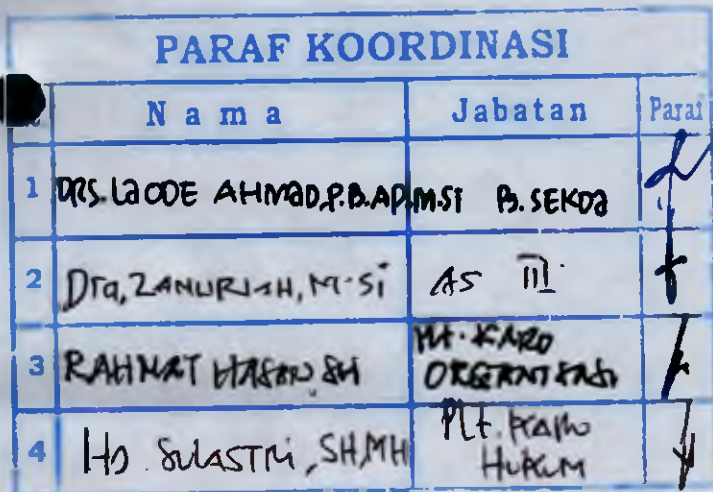 PARAF KOORDINASI
Nama Jabatan Paraf
1 DRS. LAODE AHMAD.P.B.AP,M.Si P. SEKDA
2 Dra, ZANURIAH, M.Si AS III
3 RAHMAT HASAN SH Plt. KARO ORGANISASI
4 Hj. SULASTRI, SH,MH Plt. KARO HUKUM